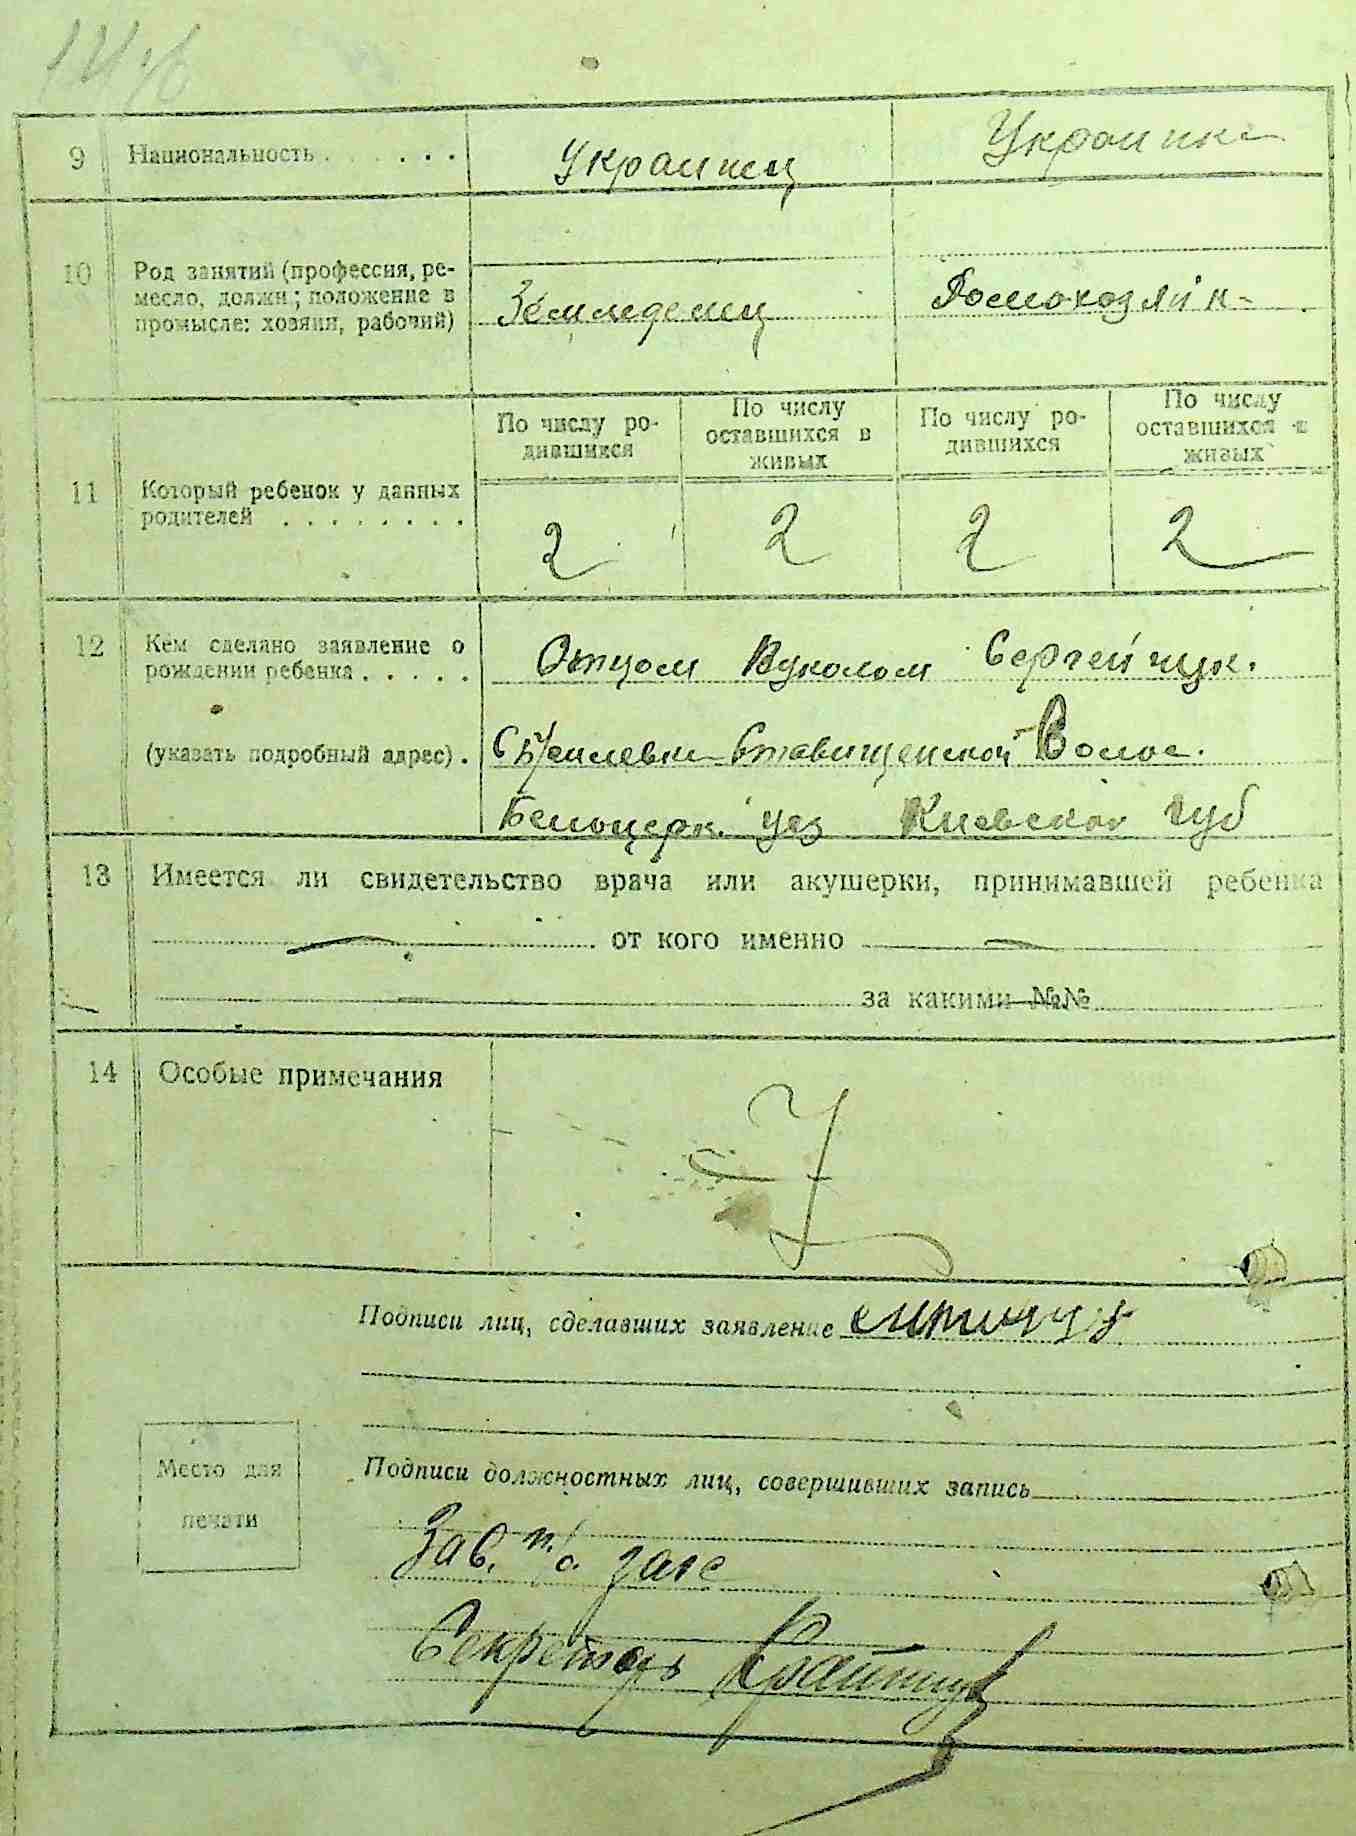 9 Национальность . . . . . . . Украинец Украинка
10 Род занятий (профессия, ре-
месло, должн.; положение в
промысле: хозяин, рабочий) Земледелец Домохозяйк-
По числу ро-
дившихся
По числу
оставшихся в
живых
По числу ро-
дившихся
По числу
оставшихся в
живых
11 Который ребенок у данных
родителей . . . . . . . . 2 2 2 2
12 Кем сделано заявление о
рождении ребенка . . . . . Отцом Вуколом Сергейчук.
(указать подробный адрес) . Ставищенской Волос.
Белоцерк. уез Киевской губ
13 Имеется ли свидетельство врача или акушерки, принимавшей ребенка
от кого именно
за какими №№
14 Особые примечания
Подписи лиц, сделавших заявление
Место для
печати
Подписи должностных лиц, совершивших запись
Зав. п/о загс
Секретарь